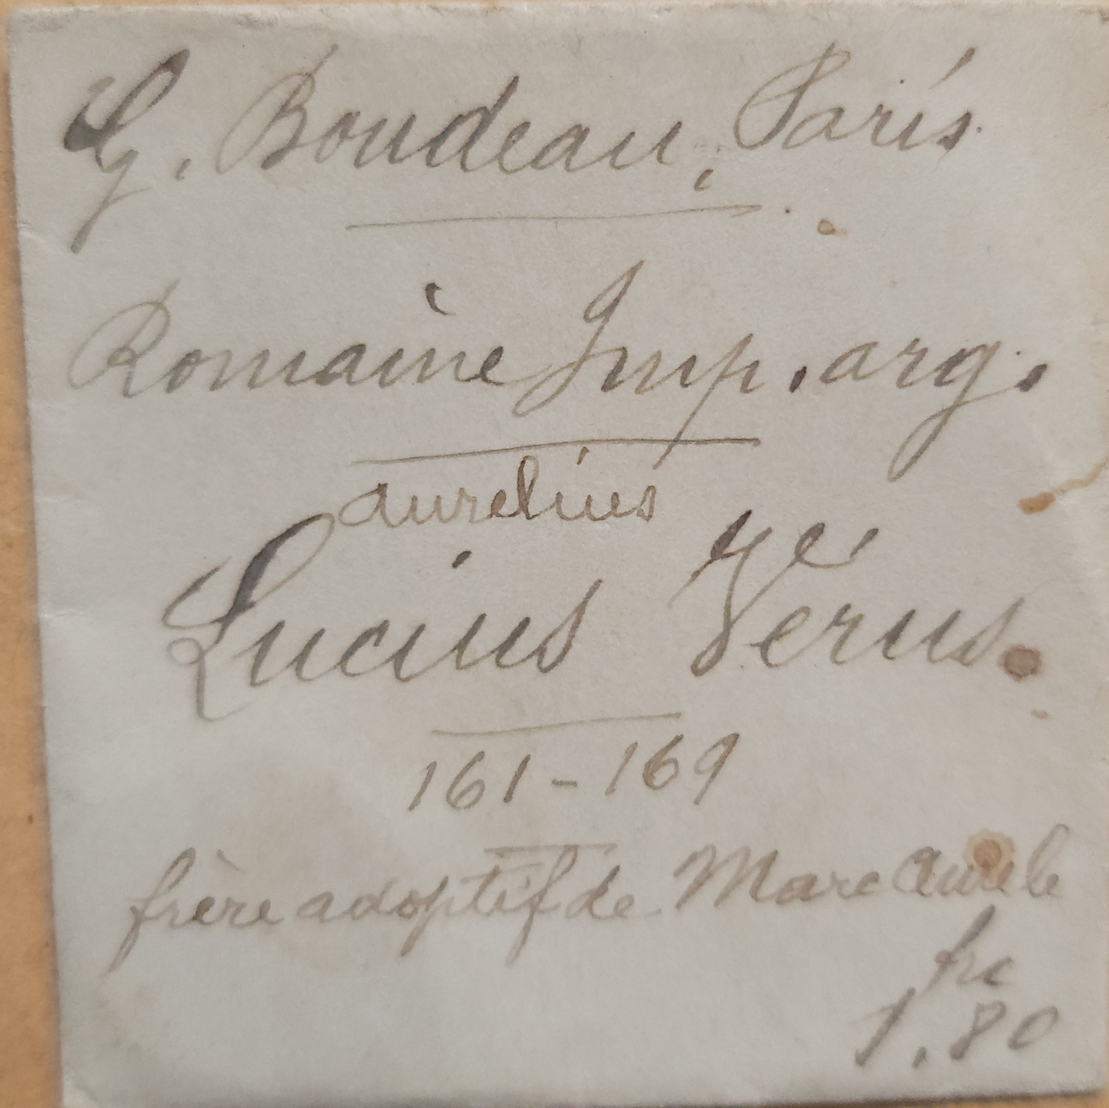 G. Boudeau, Paris
Romaine Imp. arg.
aurelius
Lucius Verus.
161-169
frère adoptif de Marc aurele
frc
1.80